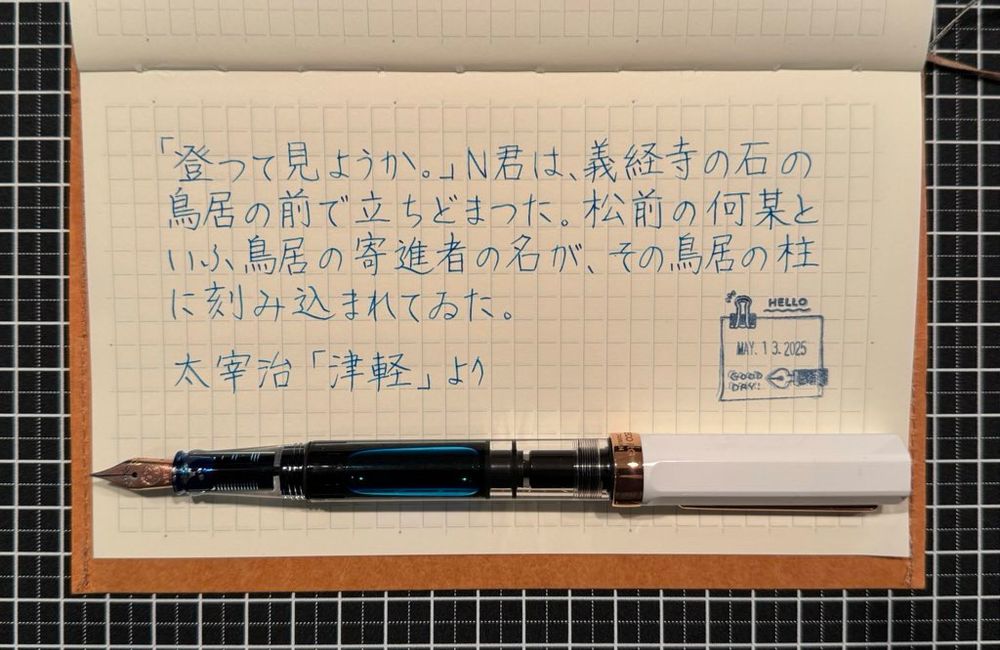 「登つて見ようか。」N君は、義経寺の石の
鳥居の前で立ちどまつた。松前の何某と
いふ鳥居の寄進者の名が、その鳥居の柱
に刻み込まれてゐた。
太宰治「津軽」より
HELLO
MAY. 13. 2025
GOOD
DAY!